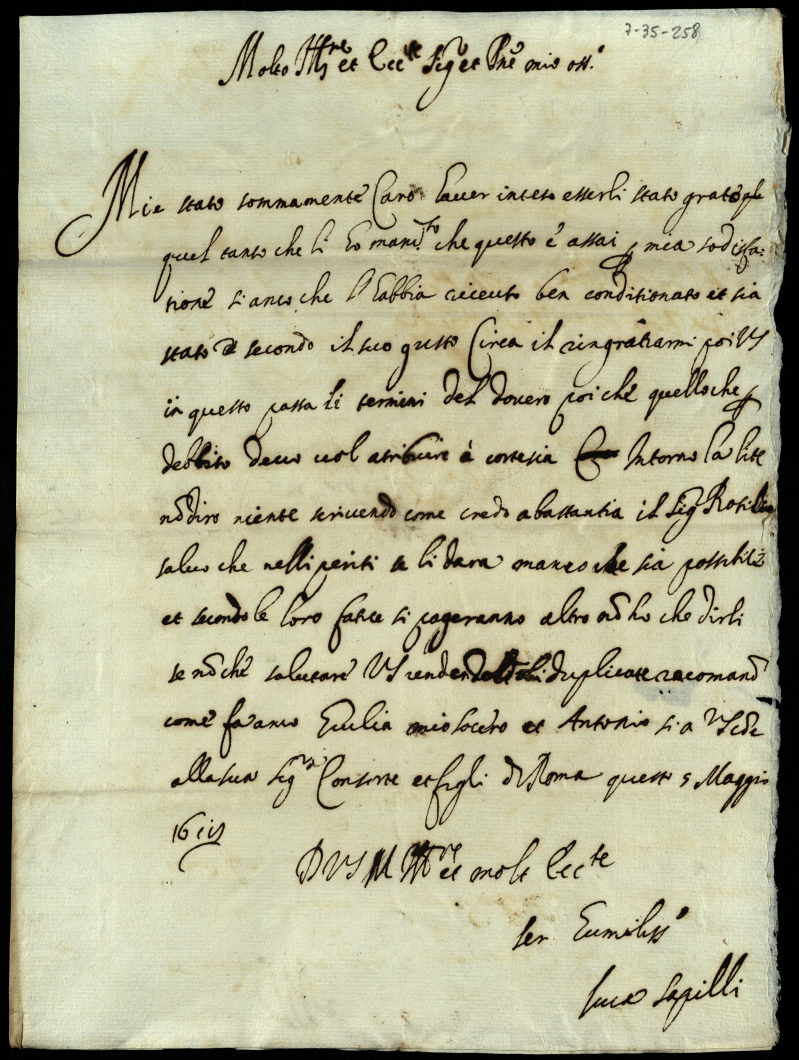 7-35-258
Molto Ill.re et Ecc.te Sig.r et Pne mio oss.o
Mie stato sommamente Caro hauer inteso esserli stato grato
quel tanto che li ho mand.to che questo è assai p mea sodisfa-
tione si anco che l'habbia riceuto ben conditionato et sia
stato secondo il suo gusto Circa il ringratiarmi poi VS
in questo passa li termini del douero poi che quello che p
debbito deuo uol atribuire à cortesia Intorno la lite
nõ diro niente scriuendo come credo abastantia il Sig.r
saluo che nelli periti se li dara manco che sia possibile
et secondo le loro fatice si pageranno altro nõ ho che dirli
se nõ che salutare VS rendendoli duplicate racomand
come fa anco mio socero et Antonio si a VS
alla sua Sig.ra Consorte et figli di Roma questo 5 Maggio
16
D VS M Ill.re et molt Ecc.te
ser humiliss.o
Luca Sapilli